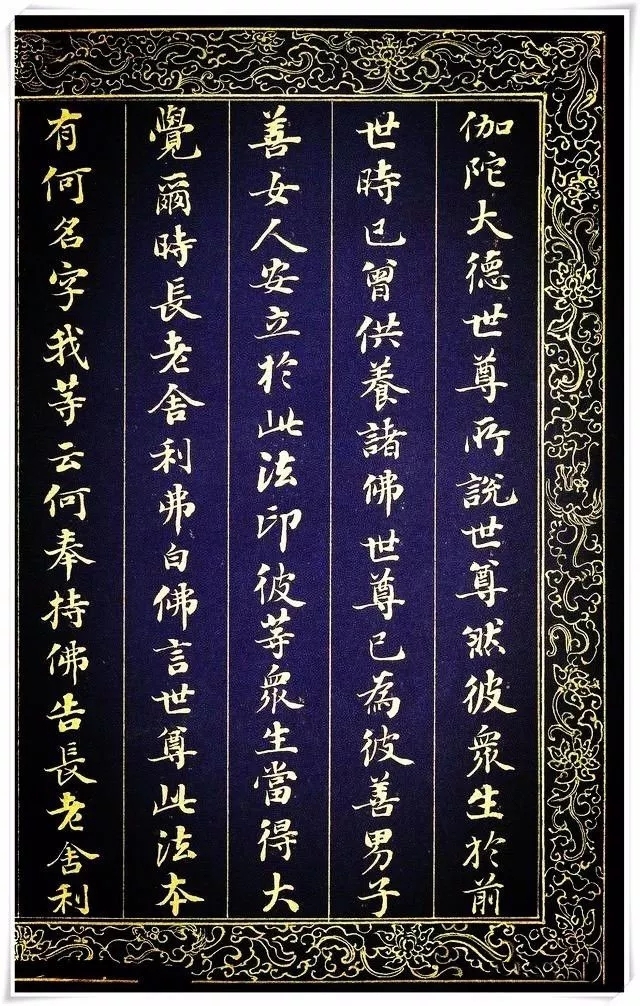 伽陀大德世尊所說世尊然彼衆生於前
世時已曾供養諸佛世尊已為彼善男子
善女人安立於此法印彼等衆生當得大
覺爾時長老舍利弗白佛言世尊此法本
有何名字我等云何奉持佛告長老舍利